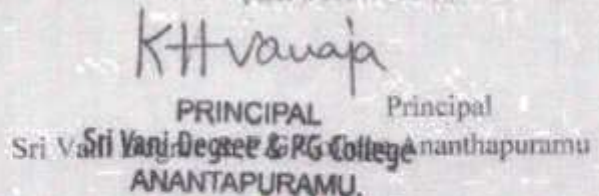 KHvanaja
PRINCIPAL Principal
Sri Vani Degree & PG College Ananthapuramu
ANANTAPURAMU.